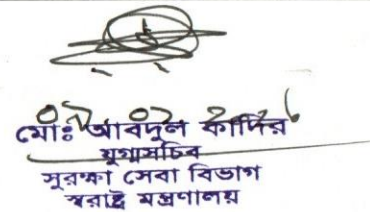 মোঃ আবদুল কাদির
যুগ্মসচিব
সুরক্ষা সেবা বিভাগ
স্বরাষ্ট্র মন্ত্রণালয়